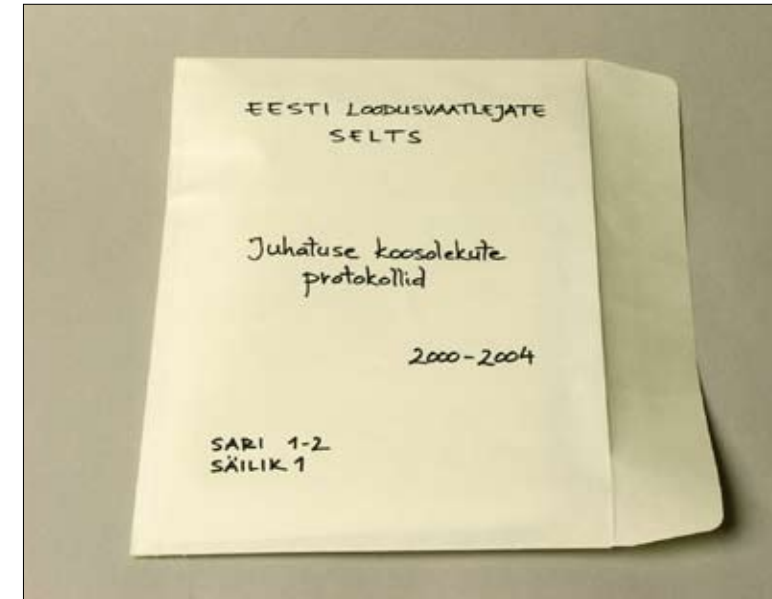 EESTI LOODUSVAATLEJATE
SELTS
Juhatuse koosolekute
protokollid
2000-2004
SARI 1-2
SÄILIK 1